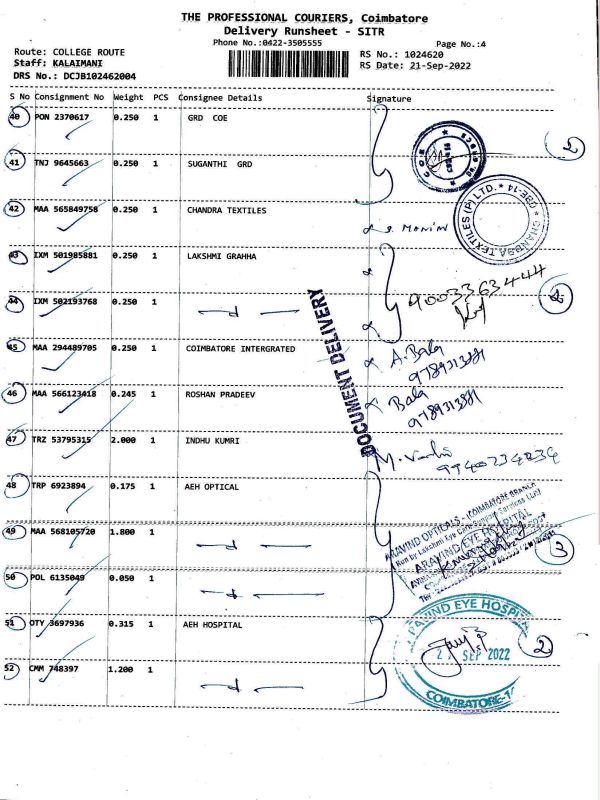 THE PROFESSIONAL COURIERS, Coimbatore
Delivery Runsheet - SITR
Phone No.:0422-3505555
Page No.:4
Route: COLLEGE ROUTE
RS No.: 1024620
Staff: KALAIMANI
RS Date: 21-Sep-2022
DRS No.: DCJB102462004
S No Consignment No Weight PCS Consignee Details Signature
40 PON 2370617 0.250 1 GRD COE
2
41 TNJ 9645663 0.250 1 SUGANTHI GRD
42 MAA 565849758 0.250 1 CHANDRA TEXTILES
S. MANIAN
CHANDRA TEXTILES (P) LTD. * CBE-14 *
43 IXM 501985881 0.250 1 LAKSHMI GRAHHA
9003363444
44 IXM 502193768 0.250 1 — d —
2
DOCUMENT DELIVERY
45 MAA 294489705 0.250 1 COIMBATORE INTERGRATED
A. Bala
9789313881
46 MAA 566123418 0.245 1 ROSHAN PRADEEV
Bala
9789313881
47 TRZ 53795315 2.000 1 INDHU KUMRI
9940234034
48 TRP 6923894 0.175 1 AEH OPTICAL
ARAVIND OPTICALS - COIMBATORE BRANCH
ARAVIND EYE HOSPITAL
49 MAA 568105720 1.800 1 — d —
3
50 POL 6135049 0.050 1 — d —
51 OTY 3697936 0.315 1 AEH HOSPITAL
EYE HOSPITAL
SEP 2022
COIMBATORE-14
2
52 CMM 748397 1.200 1 — d —